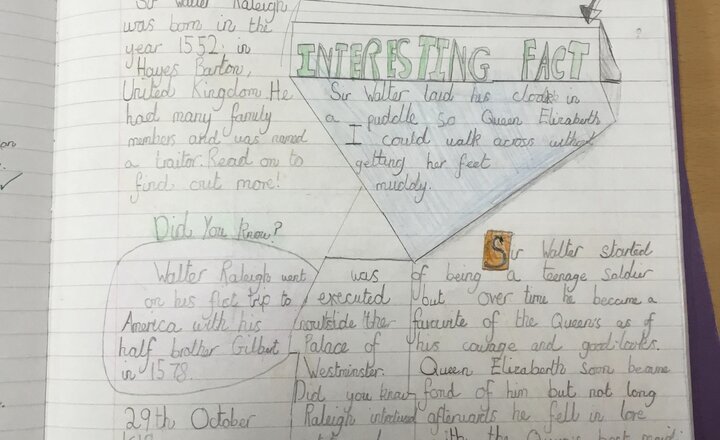 Sir Walter Raleigh
was born in the
year 1552, in
Hayes Barton,
United Kingdom. He
had many family
members and was named
a traitor. Read on to
find out more!
INTERESTING FACT
Sir Walter laid his cloak in
a puddle so Queen Elizabeth
I could walk across without
getting her feet
muddy.
Did You Know?
Walter Raleigh went
on his first trip to
America with his
half brother Gilbert
in 1578.
29th October
was
executed
outside the
Palace of
Westminster.
Did you know
Raleigh introduced
Sir Walter started
of being a teenage soldier
but over time he became a
favourite of the Queen's as of
his courage and good-looks.
Queen Elizaberth soon became
fond of him but not long
afterwards he fell in love
with the Queen's best maid